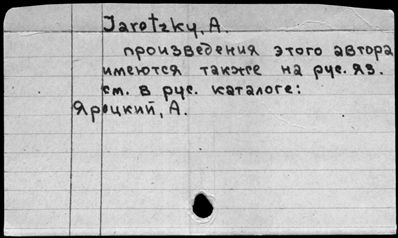 Jarotzky, A.
произведения этого автора
имеются также на рус. яз.
см. в рус. каталоге:
Яроцкий, А.